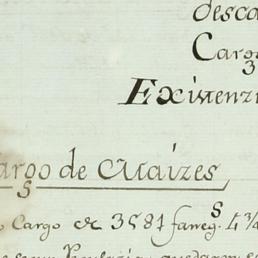 desca
Cargo
3
Existenzi
argo de Maizes
§
o Cargo de 3581 faneg.s 4 3/4